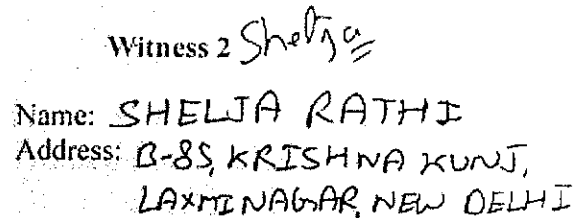 Witness 2 Shelja
Name: SHELJA RATHI
Address: B-85, KRISHNA KUNJ,
LAXMI NAGAR, NEW DELHI